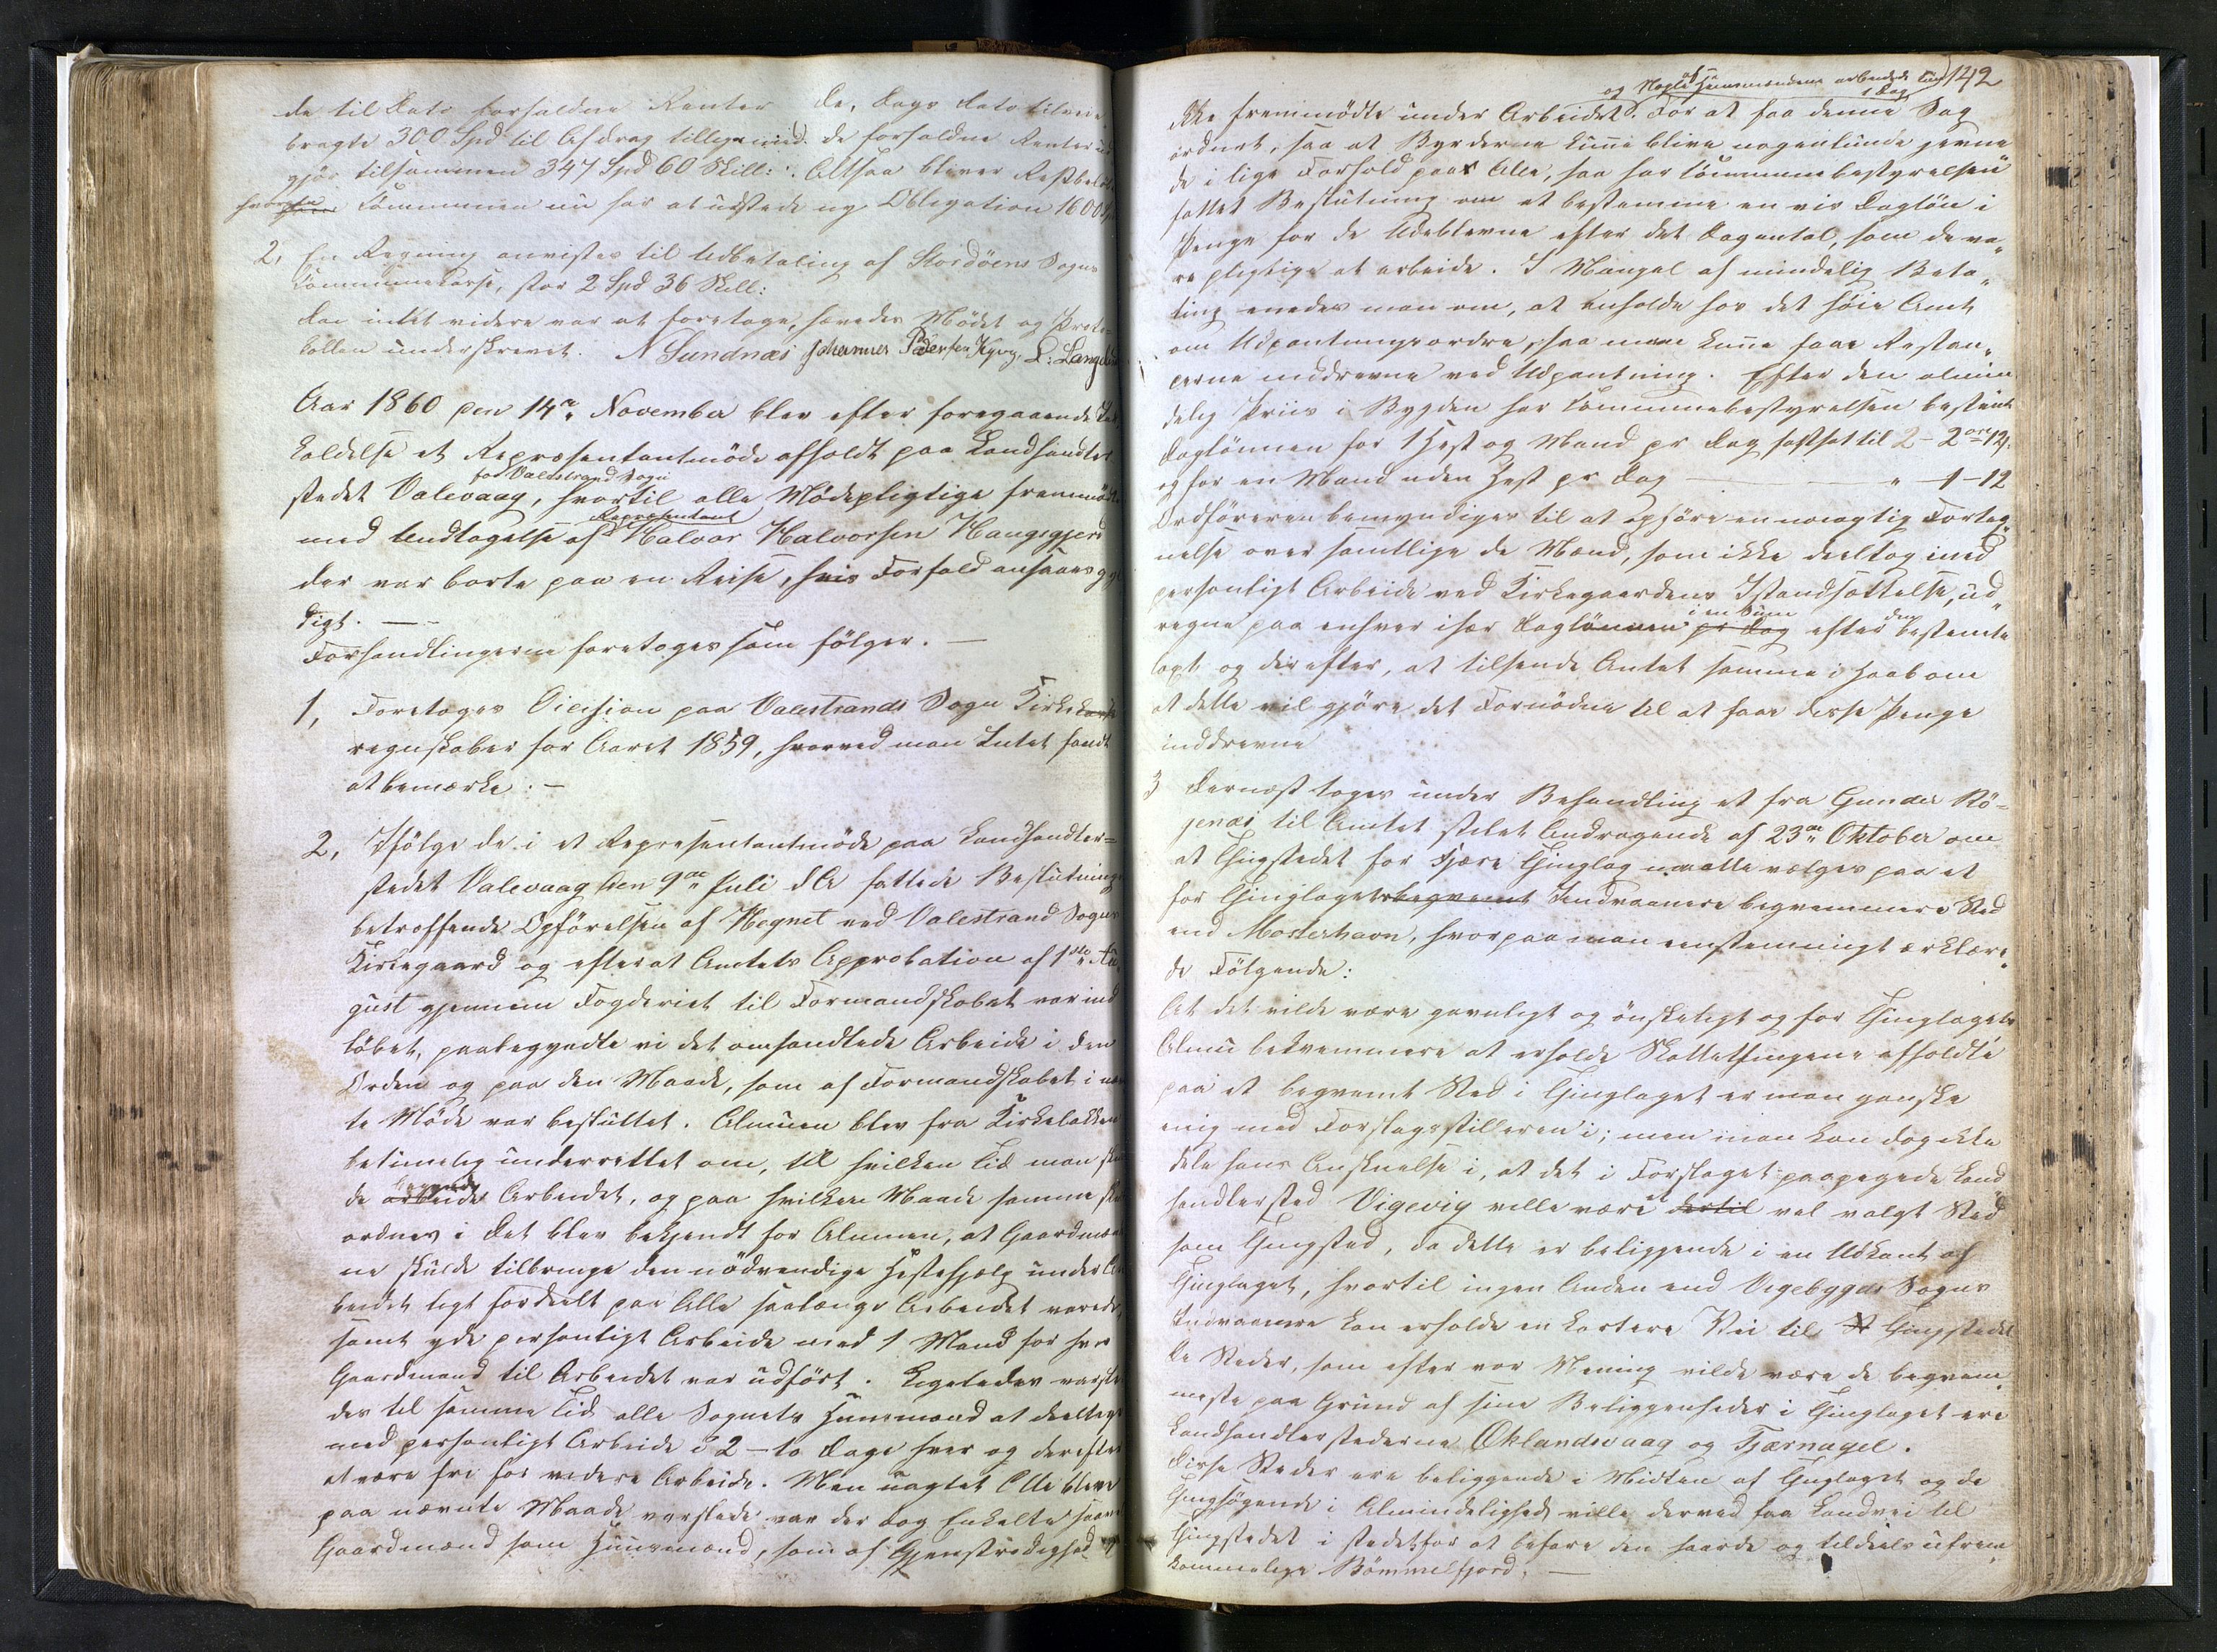 de til Dato forfaldne Renter de, Dags Dato tilveie
bragte 300 Spd til Afdrag tilligemed de forfaldne Renter ud
gjør tilsammen 347 Spd 60 Skill: Altsaa bliver Restbeløb
hvorfor Kommunen nu har at udstede ny Obligation 1600
2, En Regning anvistes til Udbetaling af Stordøens Sogns
Kommunekasse, stor 2 Spd 36 Skill:
Da intet videre var at foretage, hævedes Mødet og Proto-
kollen underskrevet. N Sundnæs Johannes Pedersen L: Lange
Aar 1860 den 14de November blev efter foregaaende
kaldelse et Repræsentantmøde afholdt paa Landhandler
for Valestrand Sogn
stedet Valevaag, hvortil alle Mødepligtige fremmødte
Repræsentant
med Undtagelse af Halvor Halvorsen Haugsgjerd
der var borte paa en Reise, hvis Forfald ansaaes gyl
digt. —
Forhandlingerne foretoges som følger. —
1, Foretoges Decision paa Valestrands Sogn Kirke
regnskaber for Aaret 1859, hvorved man Intet fandt
at bemærke. —
2, Ifølge de i et Representantmøde paa Landhandler=
stedet Valevaag den 9de Juli d A fattede Beslutning
betræffende Opførelsen af Hegnet ved Valestrand Sogns
Kirkegaard og efterat Amtets Approbation af 1ste Au
gust gjennem Fogderiet til Formandskabet var ind
løbet, paabegyndte vi det omhandlede Arbeide i den
Orden og paa den Maade, som af Formandskabet i næv
te Møde var besluttet. Almuen blev fra Kirkebakken
betimelig underrettet om, til hvilken Tid man skul
begynde
de arbeide Arbeidet, og paa hvilken Maade samme
ordnes i Det blev bekjendt for Almuen, at Gaardmæn
ne skulde tilbringe den nødvendige Hestehjælp under Ar
beidet ligt fordeelt paa Alle saalænge Arbeidet varede,
samt yde personligt Arbeide med 1 Mand for hver
Gaardmand til Arbeidet var udført. Ligeledes varsle
des til samme Tid alle Sognets Husmænd at deeltage
med personligt Arbeide i 2 – to Dage hver og derefter
at være fri for videre Arbeide. Men uagtet Alle bleve
paa nævnte Maade varslede var der dog Enkelte saavel
Gaardmænd som Huusmænd, som af Gjenstridighed
142
og Nogle af Huusmændene arbeidede kun
1 Dag
ikke fremmødte under Arbeidet. For at faa denne Sag
ordnet, saa at Byrderne kunne blive nogenlunde jevne
de i lige Forhold paa Alle, saa har Kommunebestyrelsen
fattet Beslutning om at bestemme en vis Dagløn i
Penge for de Udeblevne efter det Dagantal, som de va„
re pligtige at arbeide. I Mangel af mindelig Beta„
ling enedes man om, at anholde hos det høie Amt
om Udpantningsordre, saa man kunne faae Restan„
cerne inddrevne ved Udpantning. Efter den almin
delig Priis i Bygden har Kommunebestyrelsen bestemt
Daglønnen for 1 Hest og Mand pr Dag fastsat til 2 – 2 ort 12s.
og for en Mand uden Hest pr Dag — — „ – 1 – 12
Ordføreren bemyndiges til at opføre en nøiagtig Forteg
nelse over samtlige de Mænd, som ikke deeltog med
personligt Arbeide ved Kirkegaardens Istandsættelse, ud„
i en Sum den
regne paa enhver især Daglønnen pr Dag efter bestemte
opt og derefter, at tilsende Amtet samme i Haab om
at dette vil gjøre det Fornødne til at faae disse Penge
inddrevne
3 Dernæst toges under Behandling et fra Gunder Rø=
jenæs til Amtet stilet Andragende af 23de Oktober om
at Thingstedet for Fjære Thinglag maatte vælges paa et
for Thinglagets begvemt Indvaanere begvemmere Sted
end Mosterhavn, hvorpaa man eenstemmigt erklære„
de Følgende:
At det vilde være gavnligt og ønskeligt og for Thinglagets
Almue bekvemmere at erholde Skattethingene afholdte
paa et begvemt Sted i Thinglaget er man ganske
enig med Forslagsstilleren i; men man kan dog ikke
dele hans Anskuelse i, at det i Forslaget paapegede Land
handlersted Vigevig ville være et dertil vel valgt Sted
som Thingsted, da dette er beliggende i en Udkant af
Thinglaget, hvortil ingen Anden end Vigebygds Sogns
Indvaanere kan erholde en kortere Vei til Thingstedet
De Steder, som efter vor Mening vilde være de begvem„
meste paa Grund af sine Beliggenheder i Thinglaget ere
Landhandlerstederne Øklandsvaag og Tjærnagel.
Disse Steder ere beliggende i Midten af Thinglaget og de
Thingsøgende i Almindelighed ville derved faa Landvei til
Thingstedet i stedetfor at befare den haarde og tildeels ufrem„
kommelige Bømmelfjord. —